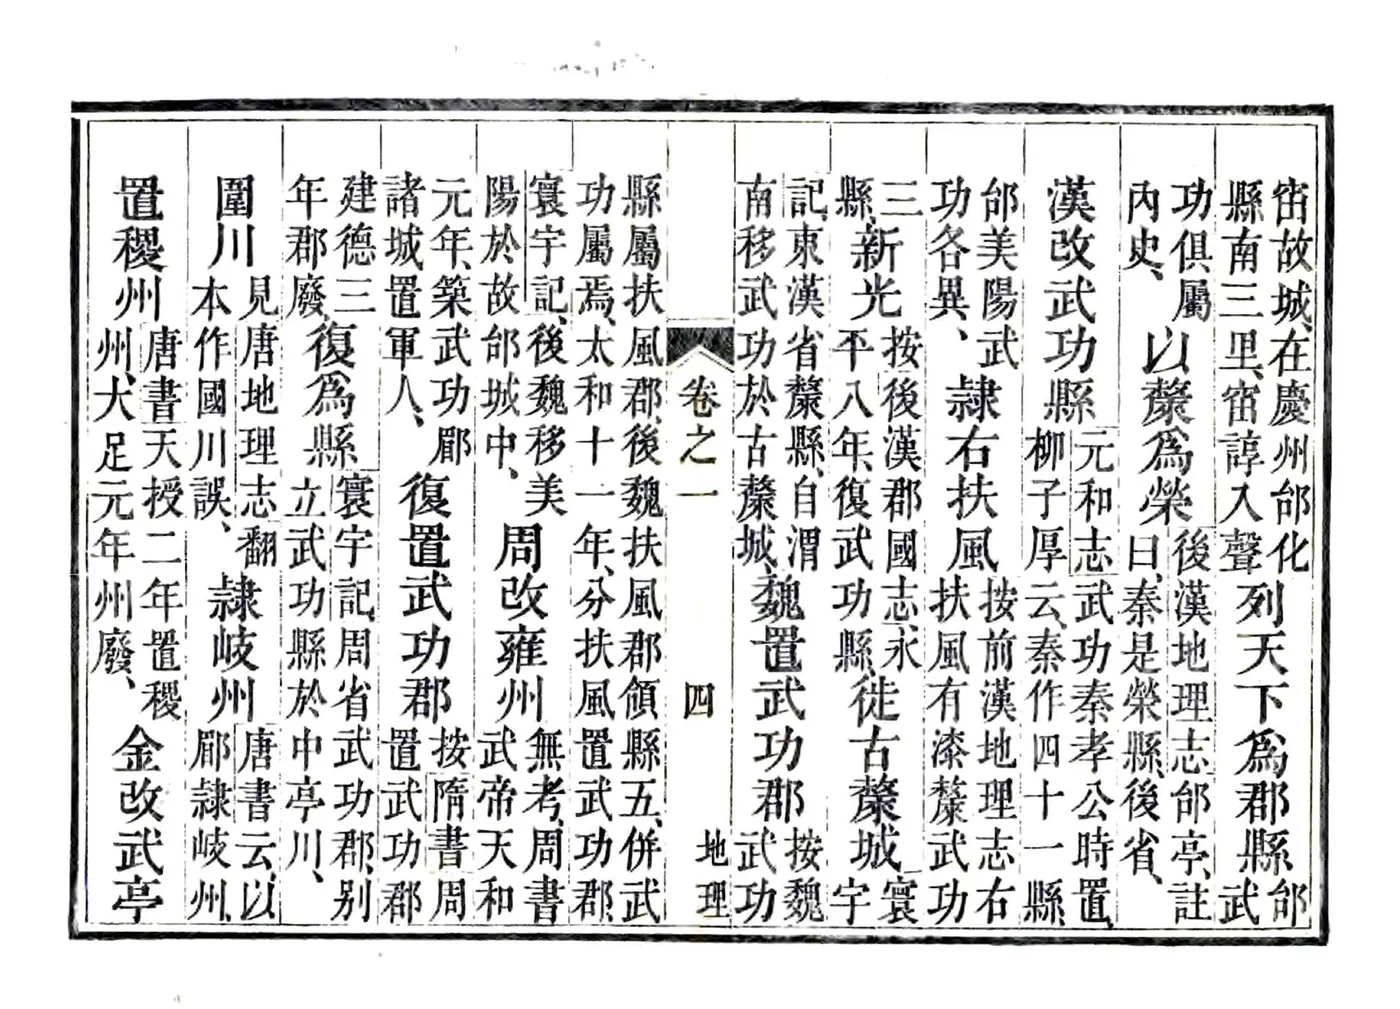 窋故城、在慶州邰化縣南三里、窋諄入聲列天下爲郡縣邰武
功俱屬內史、以斄爲榮後漢地理志邰亭、註曰、秦是榮縣、後省、
漢改武功縣元和志武功秦孝公時置、柳子厚云、秦作四十一縣
邰美陽武功各異、隸右扶風按前漢地理志右扶風有漆斄武功
三縣、新光按後漢郡國志、永平八年、復武功縣、徙古斄城寰宇
記、東漢省斄縣、自渭南移武功於古斄城、魏置武功郡按魏武功
卷之一 四 地理
縣屬扶風郡、後魏扶風郡領縣五、併武功屬焉、太和十一年、分扶風置武功郡、
寰宇記、後魏移美陽於故邰城中、周改雍州無考、周書武帝天和
元年、築武功郿諸城置軍人、復置武功郡按隋書周置武功郡
建德三年郡廢、復爲縣寰宇記、周省武功郡、別立武功縣於中亭川、
圍川見唐地理志翻本作國川誤、隸岐州唐書云、以郿隸岐州、
置稷州唐書天授二年置稷州、大足元年州廢、金改武亭